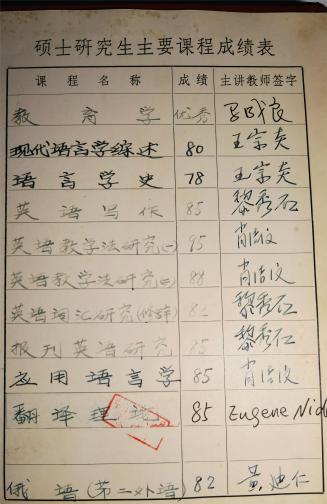 硕士研究生主要课程成绩表
课程名称 成绩 主讲教师签字
教育学 优秀
现代语言学综述 80 王宗炎
语言学史 78 王宗炎
英语写作 85 黎秀石
英语教学法研究(一) 95 肖洁文
英语教学法研究(二) 88 肖洁文
英语词汇研究(修辞) 82 黎秀石
报刊英语研究 85 黎秀石
应用语言学 85 肖洁文
翻译理论 85 Eugene Nid
俄语(第二外语) 82 黄迪仁